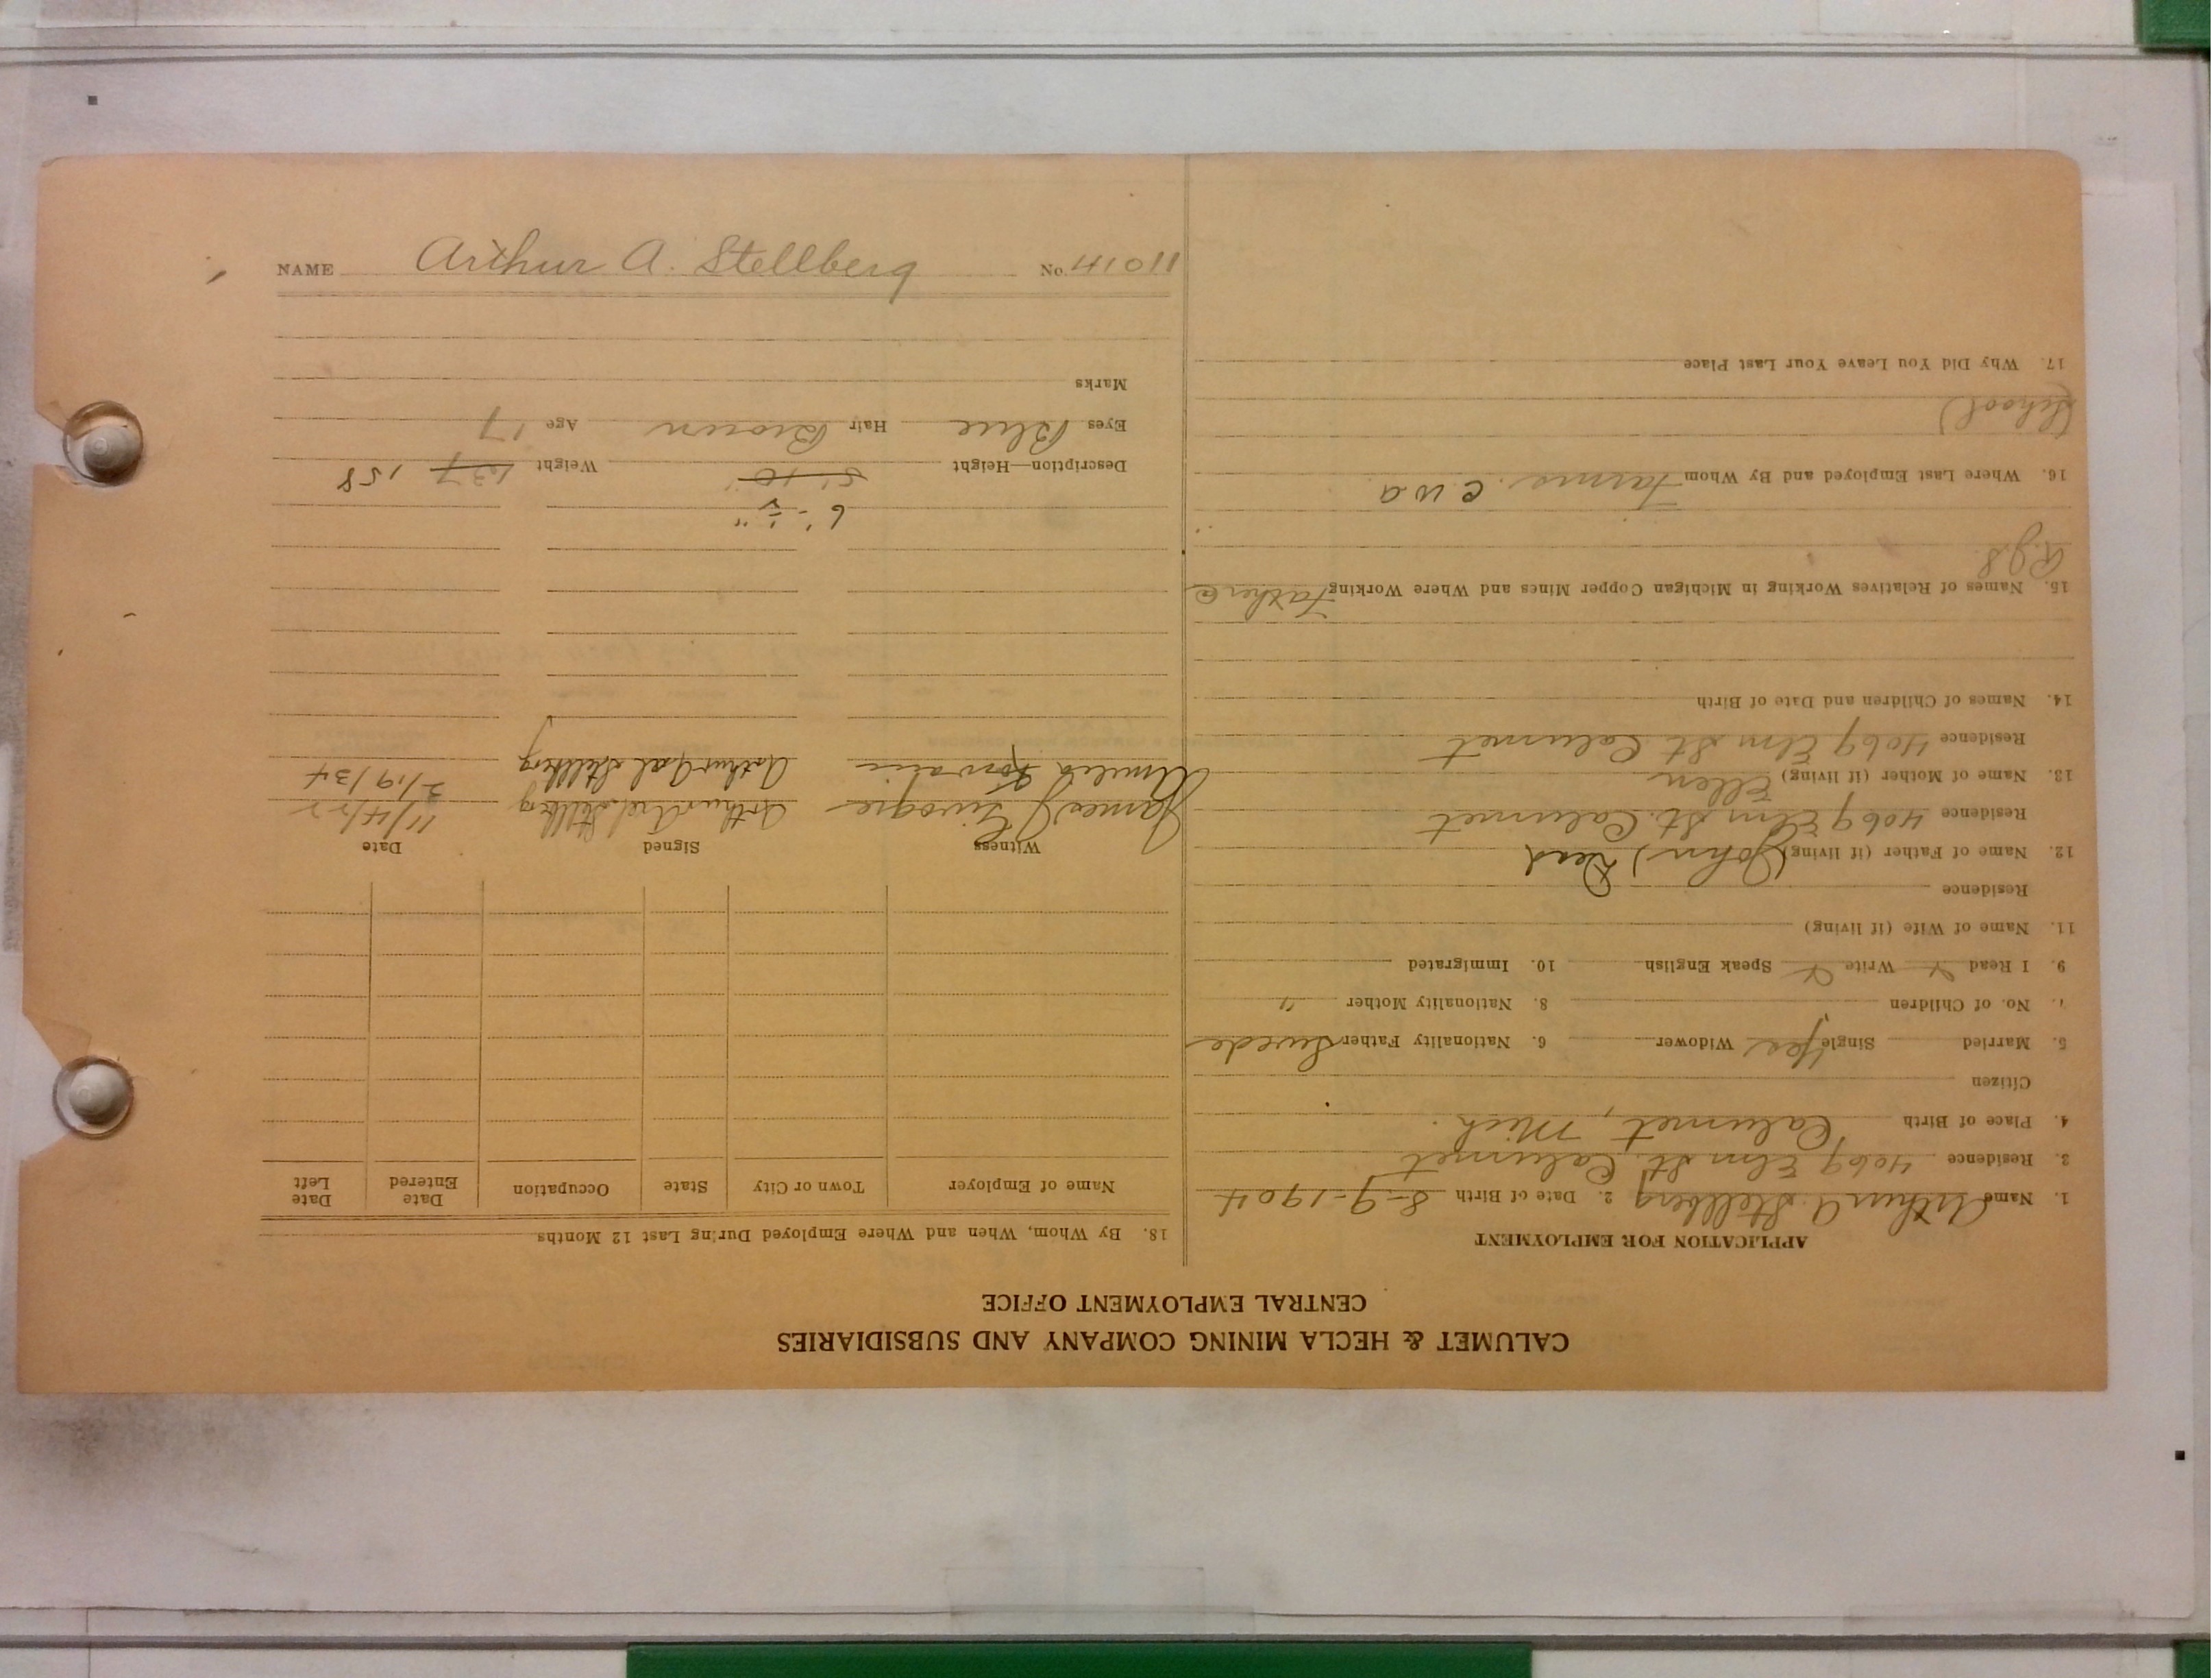 NAME Arthur A. Stellberg No. 41011
CALUMET & HECLA MINING COMPANY AND SUBSIDIARIES
CENTRAL EMPLOYMENT OFFICE
APPLICATION FOR EMPLOYMENT
1. Name Arthur A. Stellberg 2. Date of Birth 8-9-1904
3. Residence 4069 Elm St. Calumet
4. Place of Birth Calumet, Mich.
Citizen
5. Married Single Yes Widower 6. Nationality Father Swede
7. No. of Children 8. Nationality Mother "
9. I Read Write Speak English 10. Immigrated
11. Name of Wife (if living)
Residence
12. Name of Father (if living) (John) Dead
Residence 4069 Elm St. Calumet
13. Name of Mother (if living) Ellen
Residence 4069 Elm St. Calumet
14. Names of Children and Date of Birth
15. Names of Relatives Working in Michigan Copper Mines and Where Working Father @
16. Where Last Employed and By Whom C W A
(School)
17. Why Did You Leave Your Last Place
18. By Whom, When and Where Employed During Last 12 Months
Name of Employer Town or City State Occupation Date Entered Date Left
Witness Signed Date
James Arthur Axel Stellberg 11/4/22
Arthur Axel Stellberg 2/19/34
6' - ½"
Description—Height 5' 10" Weight 137 158
Eyes Blue Hair Brown Age 17
Marks